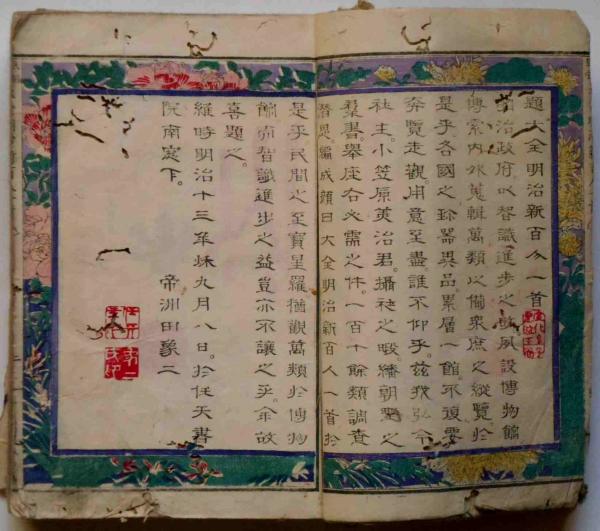 題大全明治新百人一首
治政府以智識進步之故夙設博物館
博案內外蒐輯萬類以備衆庶之縱覽於
是乎各國之珍器異品累層一館不復要
奔覽走觀用意至盡誰不仰乎。玆我弘令
社主。小笠原英治君。攝袂之暇。繙朝野之
羣書。舉座右必需之件。一百十餘類調査
思編成顏曰大全明治新百人一首於
是乎民間之至寶星羅猶觀萬類於博物
館而智識進步之益豈亦不讓之乎。余故
喜題之。
維時明治十三年秌九月八日。於任天書
院南窓下。
帝洲田象二